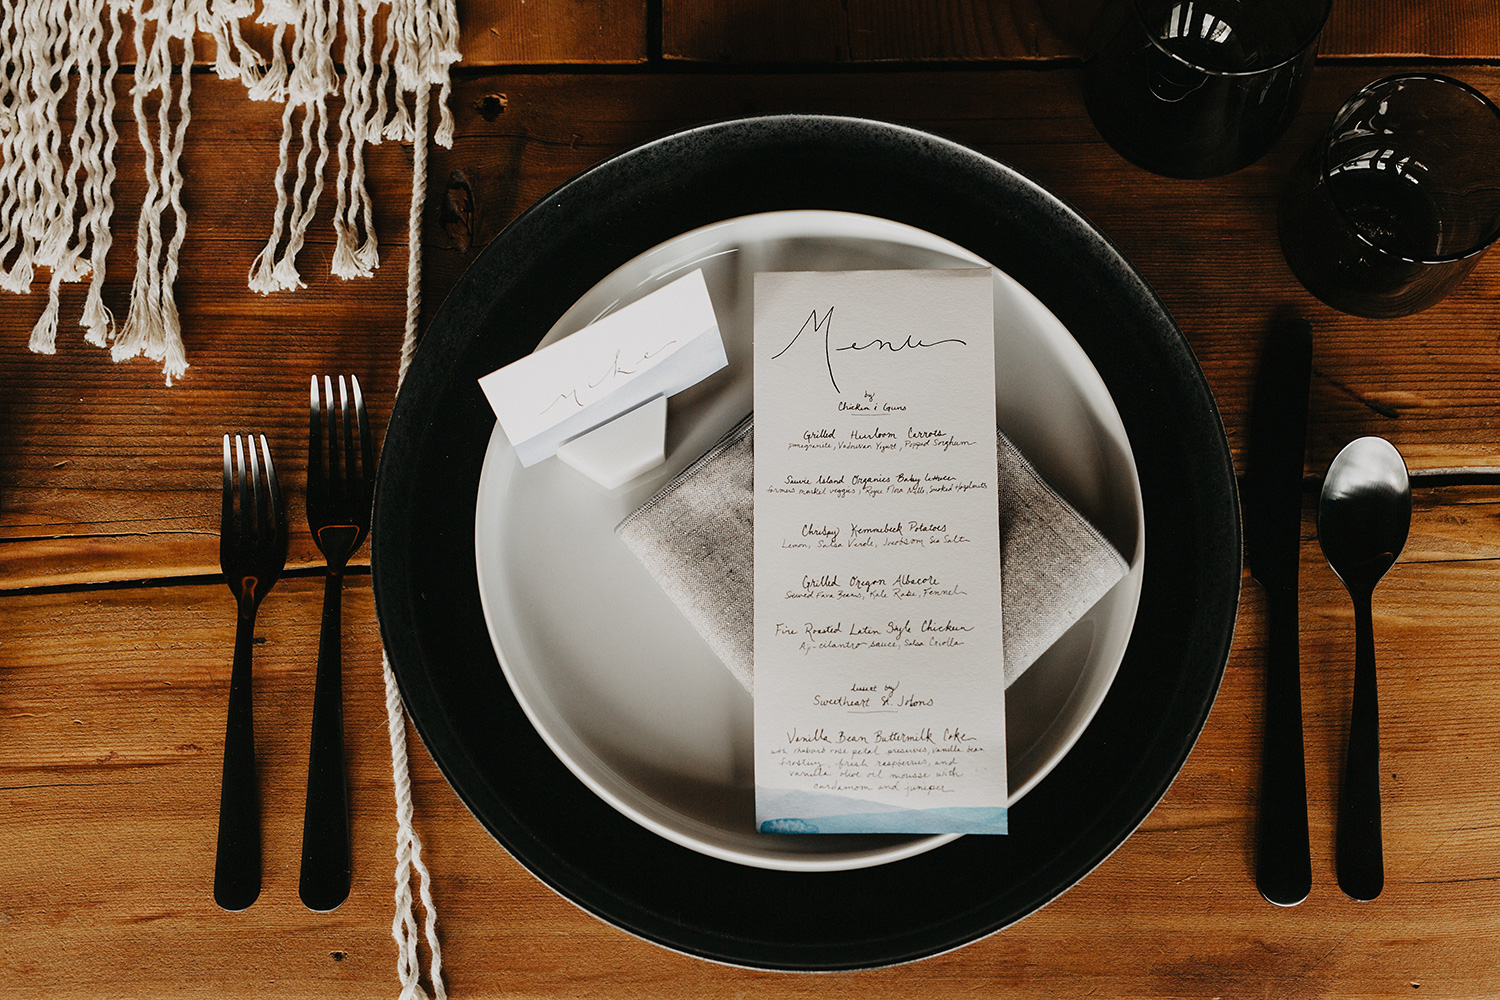 Mike
Menu
by
Chicken & Guns
Grilled Heirloom Carrots
pomegranate, Vadouvan Yogurt, Popped Sorghum
Sauvie Island Organics Baby Lettuce
farmers market veggies, Rogue Flora Nells, Smoked Hazelnuts
Chrispy Kennebeck Potatoes
Lemon, Salsa Verde, Jacobsom Sea Salt
Grilled Oregon Albacore
Stewed Fava Beans, Kale Rabe, Fennel
Fire Roasted Latin Style Chicken
Aji-cilantro sauce, Salsa Criolla
dessert by
Sweetheart St. Johns
Vanilla Bean Buttermilk Cake
with rhubarb rose petal preserves, vanilla bean
frosting, fresh raspberries, and
vanilla olive oil mousse with
cardamom and juniper